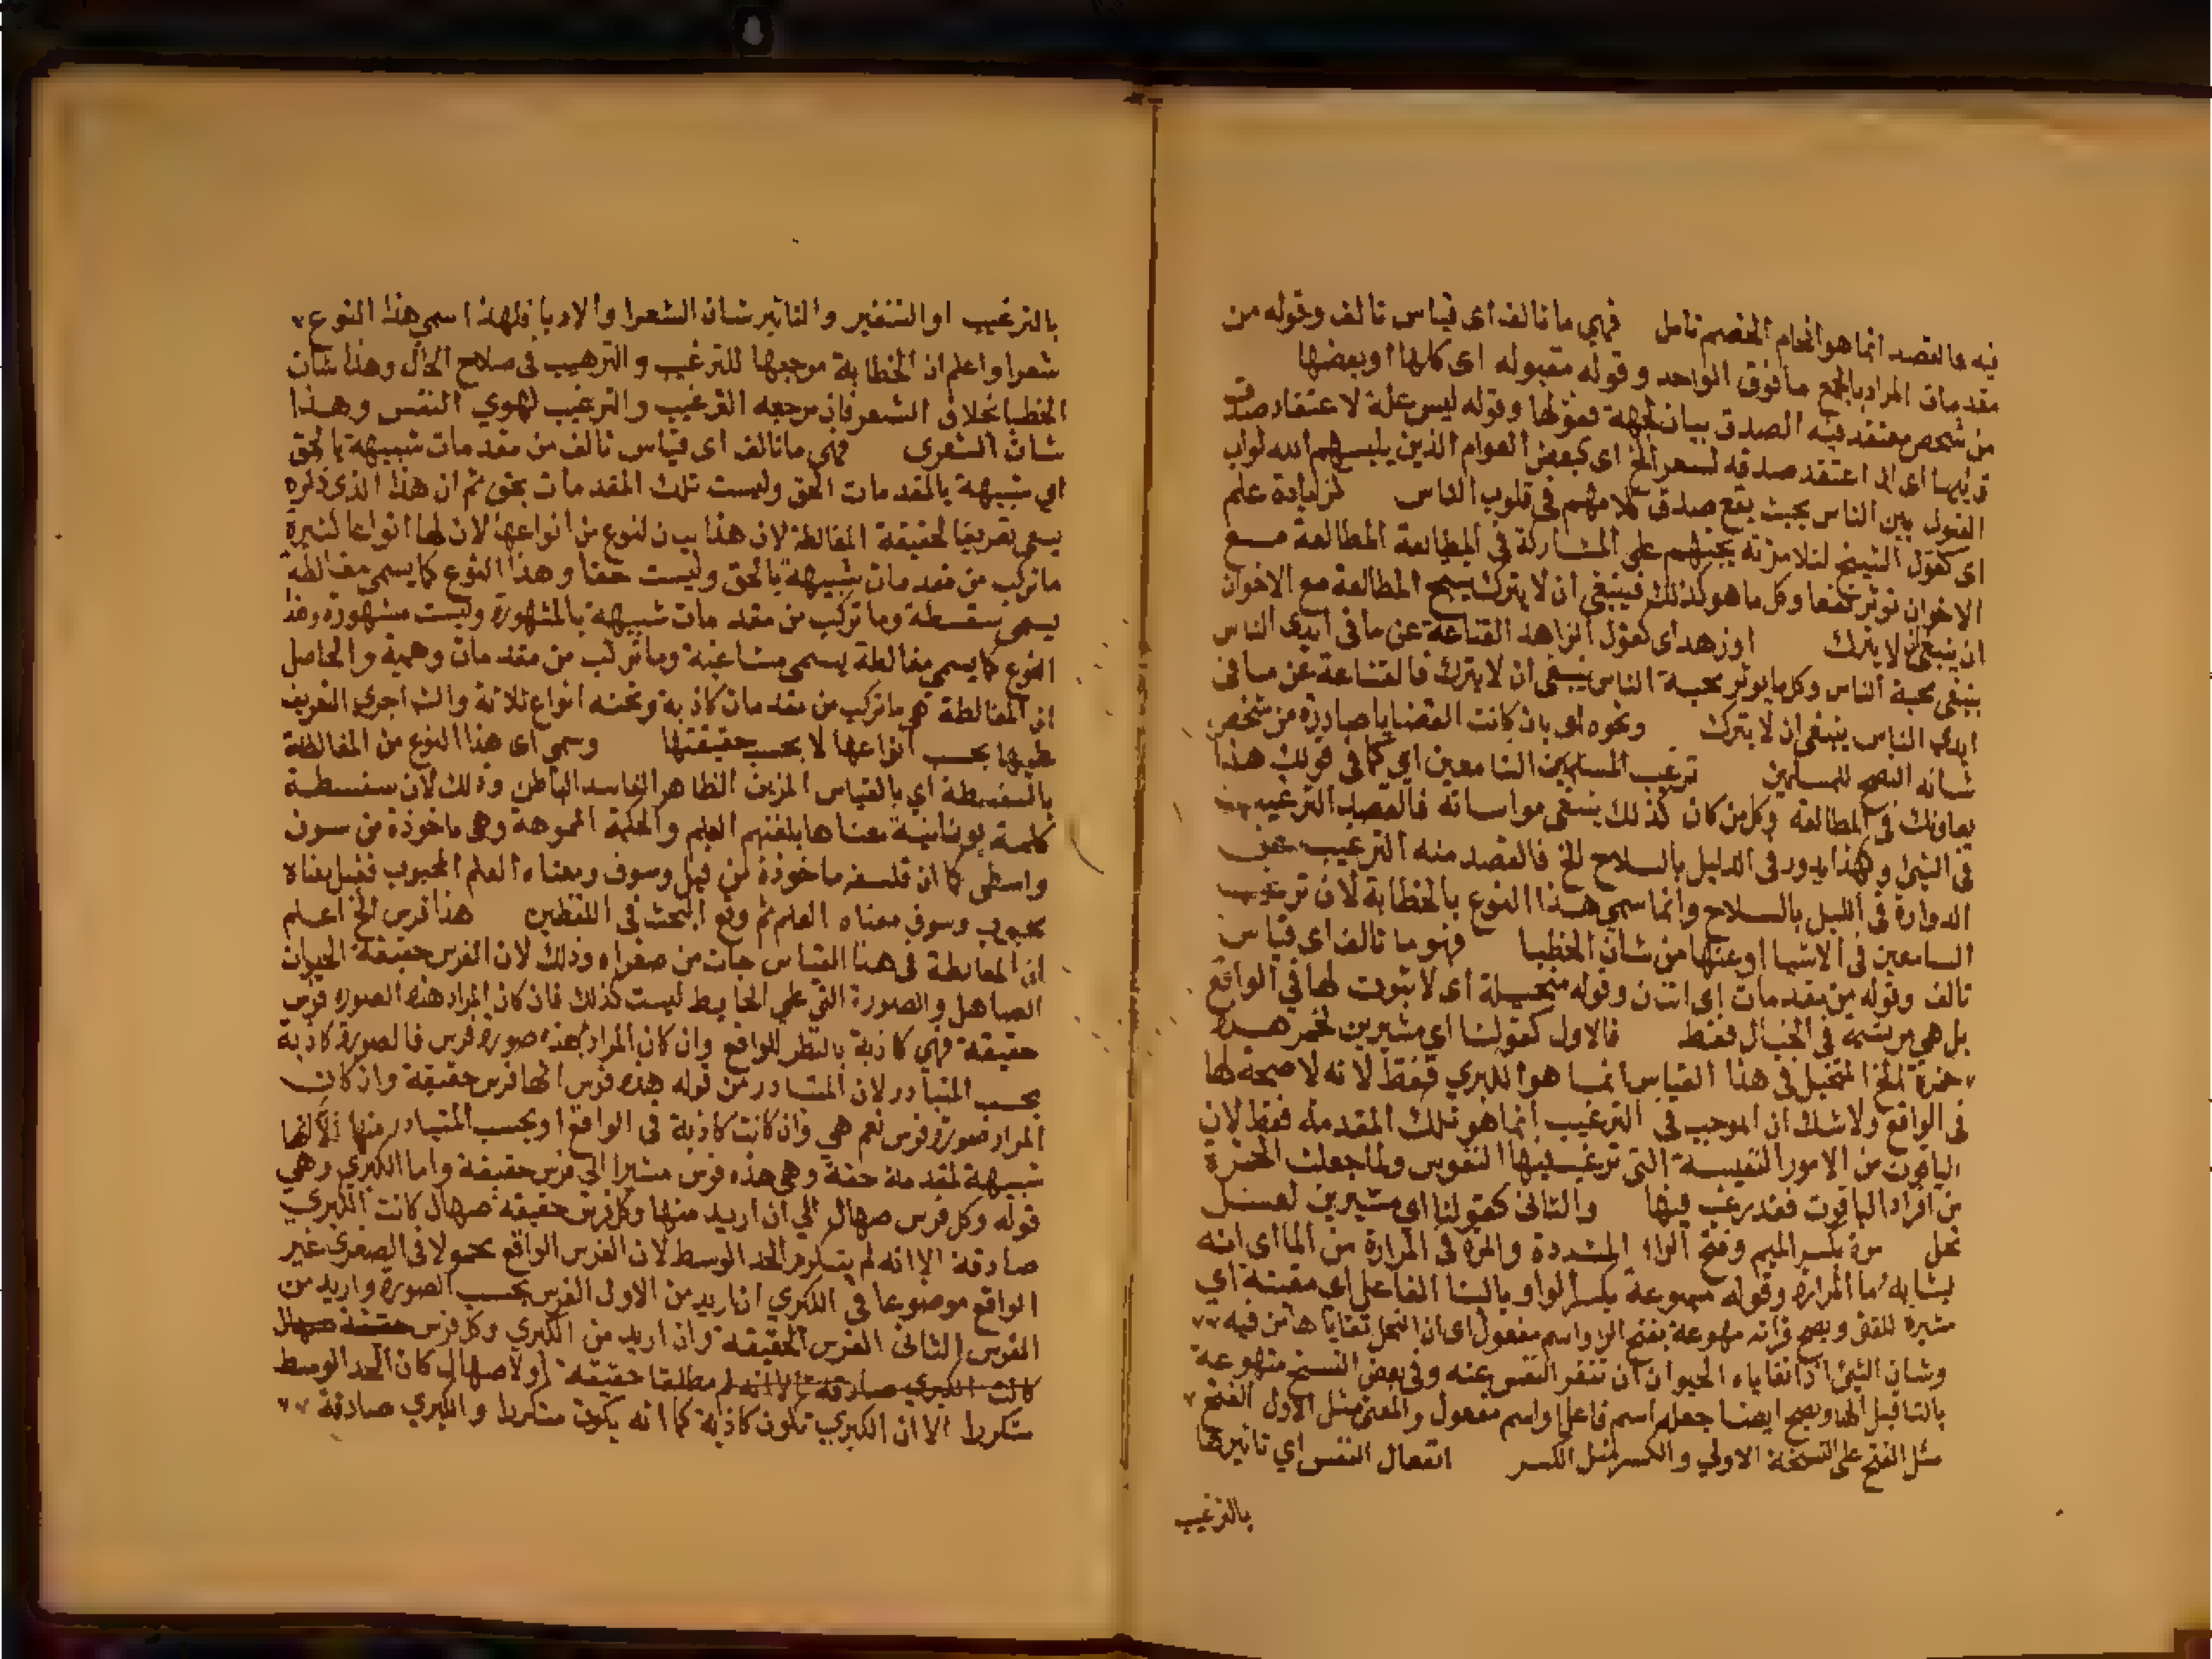 فيه فالقصد انما هو افحام الخصم تامل فهي ما تالف اى قياس تالف وقوله من
مقدمات المراد بالجمع ما فوق الواحد وقوله مقبوله اى كلها او بعضها
من شخص معتقد فيه الصدق بيان لجهة قبولها وقوله ليس علة لاعتقاد صدق
قائلها اى اى اعتقد صدقه لسر الخ اى كبعض العوام الذين يلبسهم الله ثواب
القبول بين الناس بحيث يقع صدق كلامهم فى قلوب الناس لزيادة علم
اى كقول الشيخ لتلامذته يحثهم على المشاركة فى المطالعة المطالعة مع
الاخوان توثر نفعا وكل ما هو كذلك فينبغى ان لا يترك ينتج المطالعة مع الاخوان
ينبغى ان لا يترك او زهد اى كقول الزاهد القناعة عن ما فى ايدى الناس
ينبغى محبة الناس وكل ما يوثر محبة الناس ينبغى ان لا يترك فالقناعة عن ما فى
ايدى الناس ينبغى ان لا يترك ونحوه اى بان كانت القضايا صادرة من شخص
شانه النصح للمسلمين ترغيب المسلمين السامعين اى كما فى قولك هذا
يعاونك فى المطالعة وكل من كان كذلك ينبغى مواساته فالقصد الترغيب
فى الشئ وهذا يدور فى الليل بالسلاح الخ فالقصد منه الترغيب عن
الدوارة فى الليل بالسلاح وانما سمي هذا النوع بالخطابة لان ترغيب
السامعين فى الاشيا او عنها من شان الخطبا فهو ما تالف اى قياس
تالف وقوله من مقدمات اى اثنتان وقوله متخيلة اى لا ثبوت لها في الواقع
بل هى مرتسمه في الخيال فقط فالاول كقولنا اى مشيرين لخمر هذه
خمرة الخ المتخيل فى هذا القياس انما هو الكبري فقط لانه لا صحة لها
فى الواقع ولا شك ان الموجب في الترغيب انما هو تلك المقدمة فقط لان
الياقوت من الامور النفيسة التى ترغب فيها النفوس ولما جعلت الخمرة
من افراد الياقوت فقد رغب فيها والثانى كقولنا اى مشيرين لعسل
نحل مرة بكسر الميم وفتح الراء المشددة والمرة فى المرارة من الما اى انه
يشابه ما المرارة وقوله مهوعة بكسر الواو بالبنا للفاعل اى مقيئة اي
مثيرة للقئ ويصح قراته مهوعة بفتح الواو اسم مفعول اى ان النحل تقاياها من فيه
وشان الشئ اذا تقاياه الحيوان ان تنفر النفس عنه وفى بعض النسخ متهوعة
بالتا قبل الها ويصح ايضا جعله اسم فاعل واسم مفعول والمعنى مثل الاول الفتح
مثل الفتح على النسخة الاولي والكسر مثل الكسر انفعال النفس اي تاثيرها
بالترغيب
بالترغيب او التنفير والتاثير شان الشعرا والادبا فلهذا سمي هذا النوع
شعرا واعلم ان الخطابة مرجعها للترغيب والترهيب فى صلاح الحال وهذا شان
الخطبا بخلاف الشعر فان مرجعه الترغيب والترغيب لهوي النفس وهذا
شان الشعرى فهى ما تالف اى قياس تالف من مقدمات شبيهة بالحق
اي شبيهة بالمقدمات الحق وليست تلك المقدمات بحق ثم ان هذا الذى ذكره
ليس تعريفا لحقيقة المغالطة لان هذا بيان لنوع من انواعها لان لها انواعا كثيرة
ما تركب من مقدمات شبيهة بالحق وليست حقا وهذا النوع كما يسمى مغالطة
يسمى سفسطة وما تركب من مقدمات شبيهة بالمشهورة وليست مشهورة وهذا
النوع كما يسمى مغالطة يسمى مشاغبة وما تركب من مقدمات وهمية والحاصل
ان المغالطة هو ما تركب من مقدمات كاذبة وتحته انواع ثلاثة والش اجرى التعريف
عليها بحسب انواعها لا بحسب حقيقتها وسمى اى هذا النوع من المغالطة
بالسفسطة اي بالقياس المزين الظاهر الفاسد الباطن وذلك لان سفسطة
كلمة يونانية معناها بلغتهم العلم والحكمة المموهة وهى ماخوذة من سوف
واسطى كما ان فلسفة ماخوذة من فيل وسوف ومعناه العلم المحبوب ففيل معناه
محبوب وسوف معناه العلم ثم وقع البحث فى اللفظين هذا فرس الخ اعلم
ان المغالطة فى هذا القياس جات من صغراه وذلك لان الفرس حقيقة الحيوان
الصاهل والصورة التى على الحايط ليست كذلك فان كان المراد هذه الصورة فرس
حقيقة فهي كاذبة بالنظر للواقع وان كان المراد بهذه صورة فرس فالصورة كاذبة
بحسب المتبادر لان المتبادر من قوله هذه فرس انها فرس حقيقة وان كان
المراد صورة فرس نعم هي وان كانت كاذبة فى الواقع او بحسب المتبادر منها لكنها
شبيهة لمقدمة حقة وهى هذه فرس مشيرا الى فرس حقيقة واما الكبري وهي
قوله وكل فرس صهال الي ان اريد منها وكل فرس حقيقة صهال كانت الكبري
صادقة الا انه لم يتكرر الحد الوسط لان الفرس الواقع محمولا فى الصغرى غير
الواقع موضوعا في الكبري اذ اريد من الاول الفرس بحسب الصورة واريد من
الفرس الثانى الفرس الحقيقة وان اريد من الكبري وكل فرس حقيقة صهال
كانت الكبري صادقة الا انه لم مطلقا حقيقة او لا صهال كان الحد الوسط
متكررا الا ان الكبري تكون كاذبة كما انه يكون متكررا والكبري صادقة